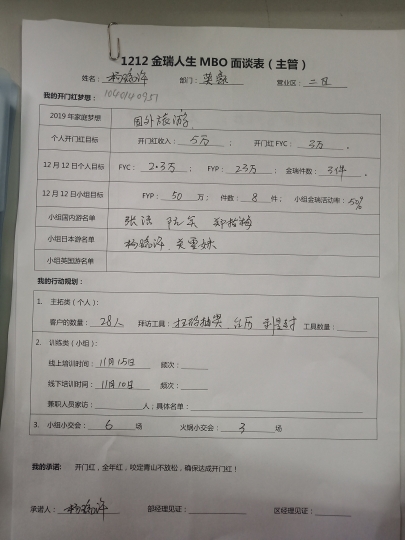 1212金瑞人生MBO面谈表（主管）
姓名： 部门： 营业区：二区
我的开门红梦想： 1040140957
2019年家庭梦想 国外旅游
个人开门红目标 开门红收入：5万； 开门红FYC：3万.
12月12日个人目标 FYC：2.3万； FYP：23万； 金瑞件数：3件.
12月12日小组目标 FYP：50万； 件数：8件； 小组金瑞活动率：50%
小组国内游名单
小组日本游名单
小组英国游名单
我的行动规划：
1. 主拓类（个人）：
客户的数量：28人 拜访工具：扫码抽奖 台历 工具数量：
2. 训练类（小组）：
线上培训时间：11月15日 频次：
线下培训时间：11月10日 频次：
兼职人员家访： 人；具体名单：
3. 小组小交会：6场 火锅小交会：3场
我的承诺： 开门红，全年红，咬定青山不放松，确保达成开门红！
承诺人： 部经理见证： 区经理见证：